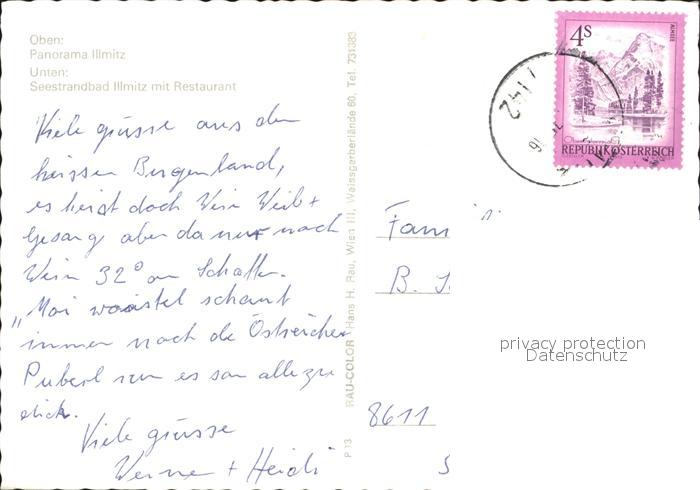 Oben:
Panorama Illmitz
Unten:
Seestrandbad Illmitz mit Restaurant
Viele grüsse aus den
heissen Burgenland,
es heist doch Wein Weib +
Gesang aber da nur noch
Wein 32° am Schatten.
"Moi schaut
immer noch de Östreicher
es san alle zu
dick.
Viele grüsse
Werner + Heidi
P 13 RAU-COLOR Hans H. Rau, Wien III, Weissgerberlände 60, Tel. 731383
4S
ALMSEE
REPUBLIK ÖSTERREICH
7142
Fam
B. S
8611
S
privacy protection
Datenschutz